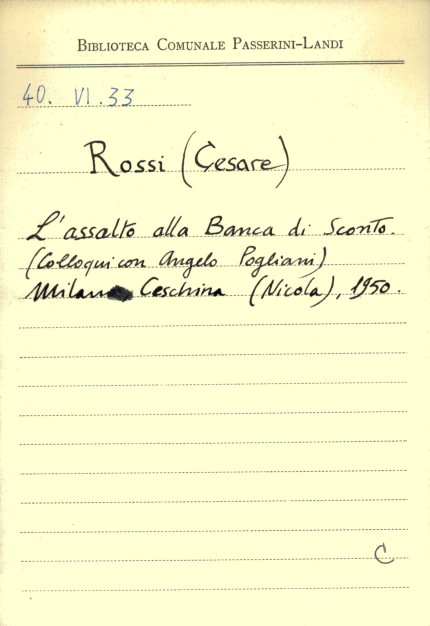 BIBLIOTECA COMUNALE PASSERINI-LANDI
40. VI. 33
Rossi (Cesare)
L'assalto alla Banca di Sconto.
(Colloqui con Angelo Pogliani)
Milano Ceschina (Nicola), 1950.
C